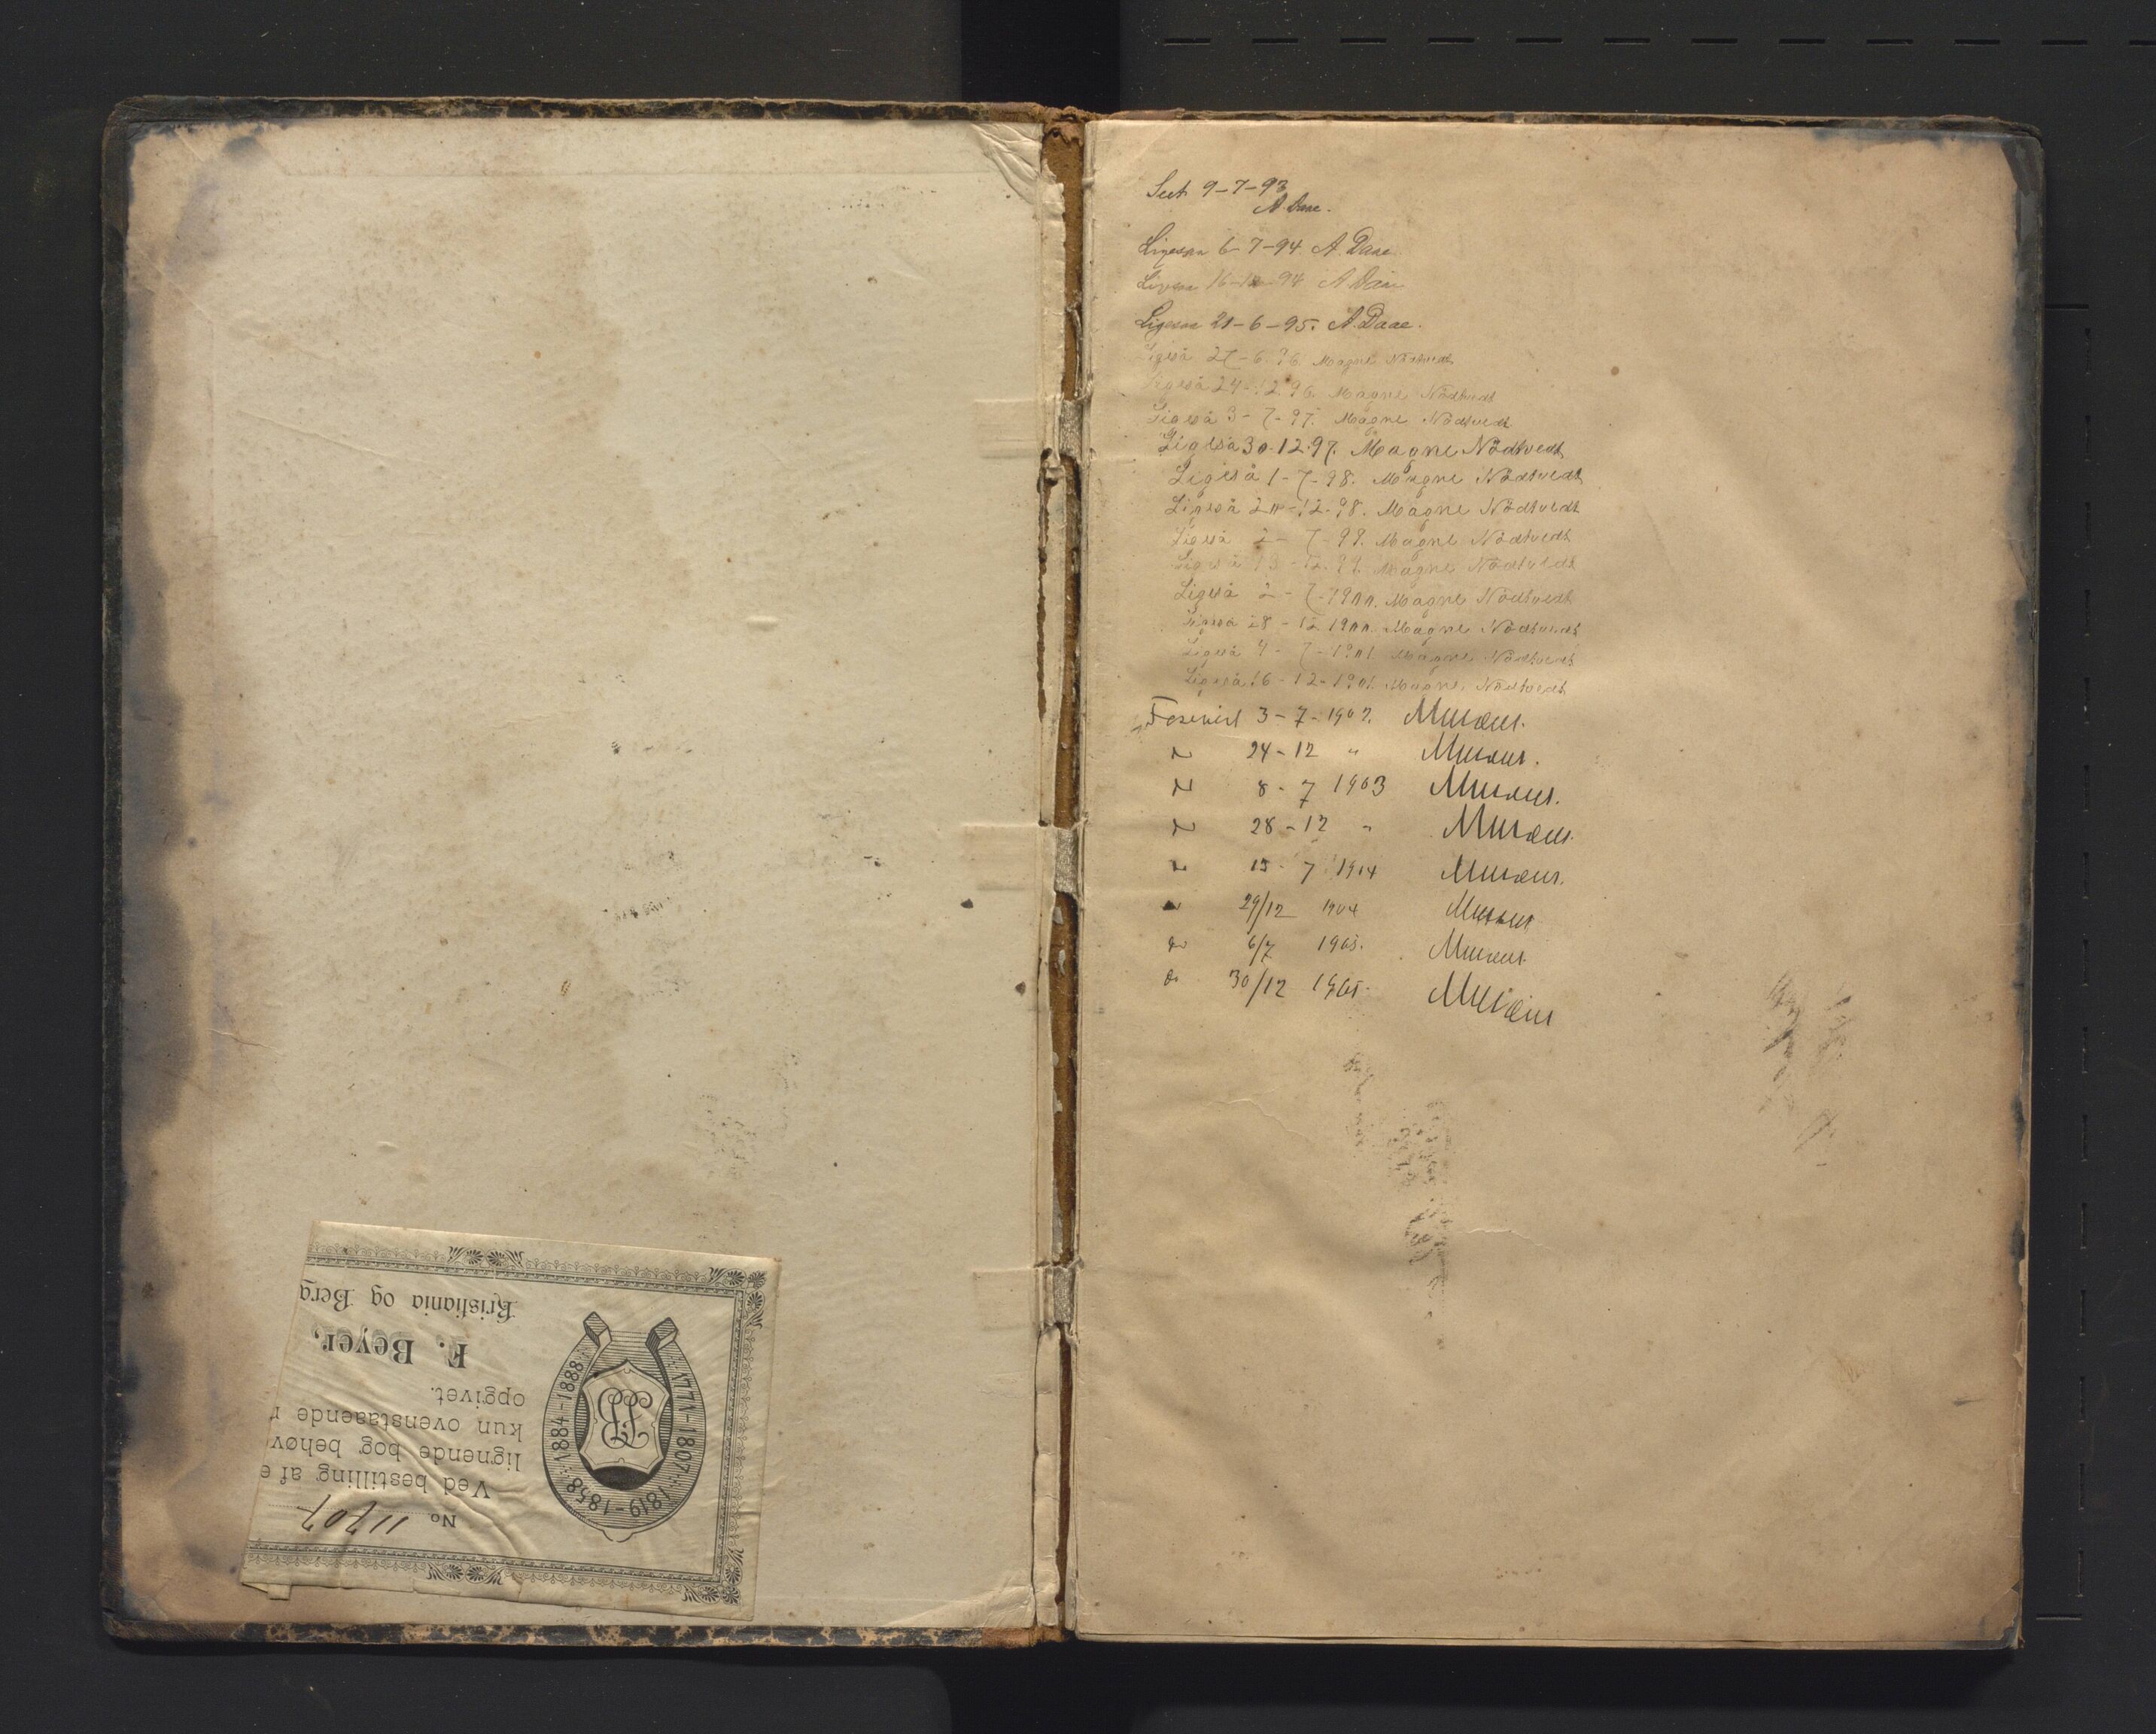 No. 11707
Ved bestilling af e
lignende bog behøv
kun ovenstaaende n
opgivet.
F. Beyer,
Kristiania og Berg
1771-1807 1819-1858 1884-1888
FB
Seet 9-7-93
A. Daae.
Ligesaa 6-7-94. A. Daae.
Ligesaa 16-12-94 A Daae
Ligesaa 21-6-95. A. Daae.
Ligeså 27-6.96 Magne Nödtvedt
Ligeså 24-12.96. Magne Nödtvedt
Ligeså 3-7-97. Magne Nödtvedt
Ligeså 30-12-97. Magne Nödtvedt
Ligeså 1-7-98. Magne Nödtvedt
Ligeså 20-12-98. Magne Nödtvedt
Ligeså 2-7-99. Magne Nödtvedt
Ligeså 13-12-99. Magne Nödtvedt
Ligeså 2-7-1900. Magne Nödtvedt
Ligeså 18-12 1900. Magne Nödtvedt
Ligeså 4-7-1901 Magne Nödtvedt
Ligeså 16-12-1901. Magne Nödtvedt
Forevist 3-7-1902. Musæus.
do 24-12 " Musæus.
do 8-7 1903 Musæus.
do 28-12 " Musæus.
do 15-7 1904 Musæus.
do 29/12 1904 Musæus
do 6/7 1905. Musæus
do 30/12 1905. Musæus